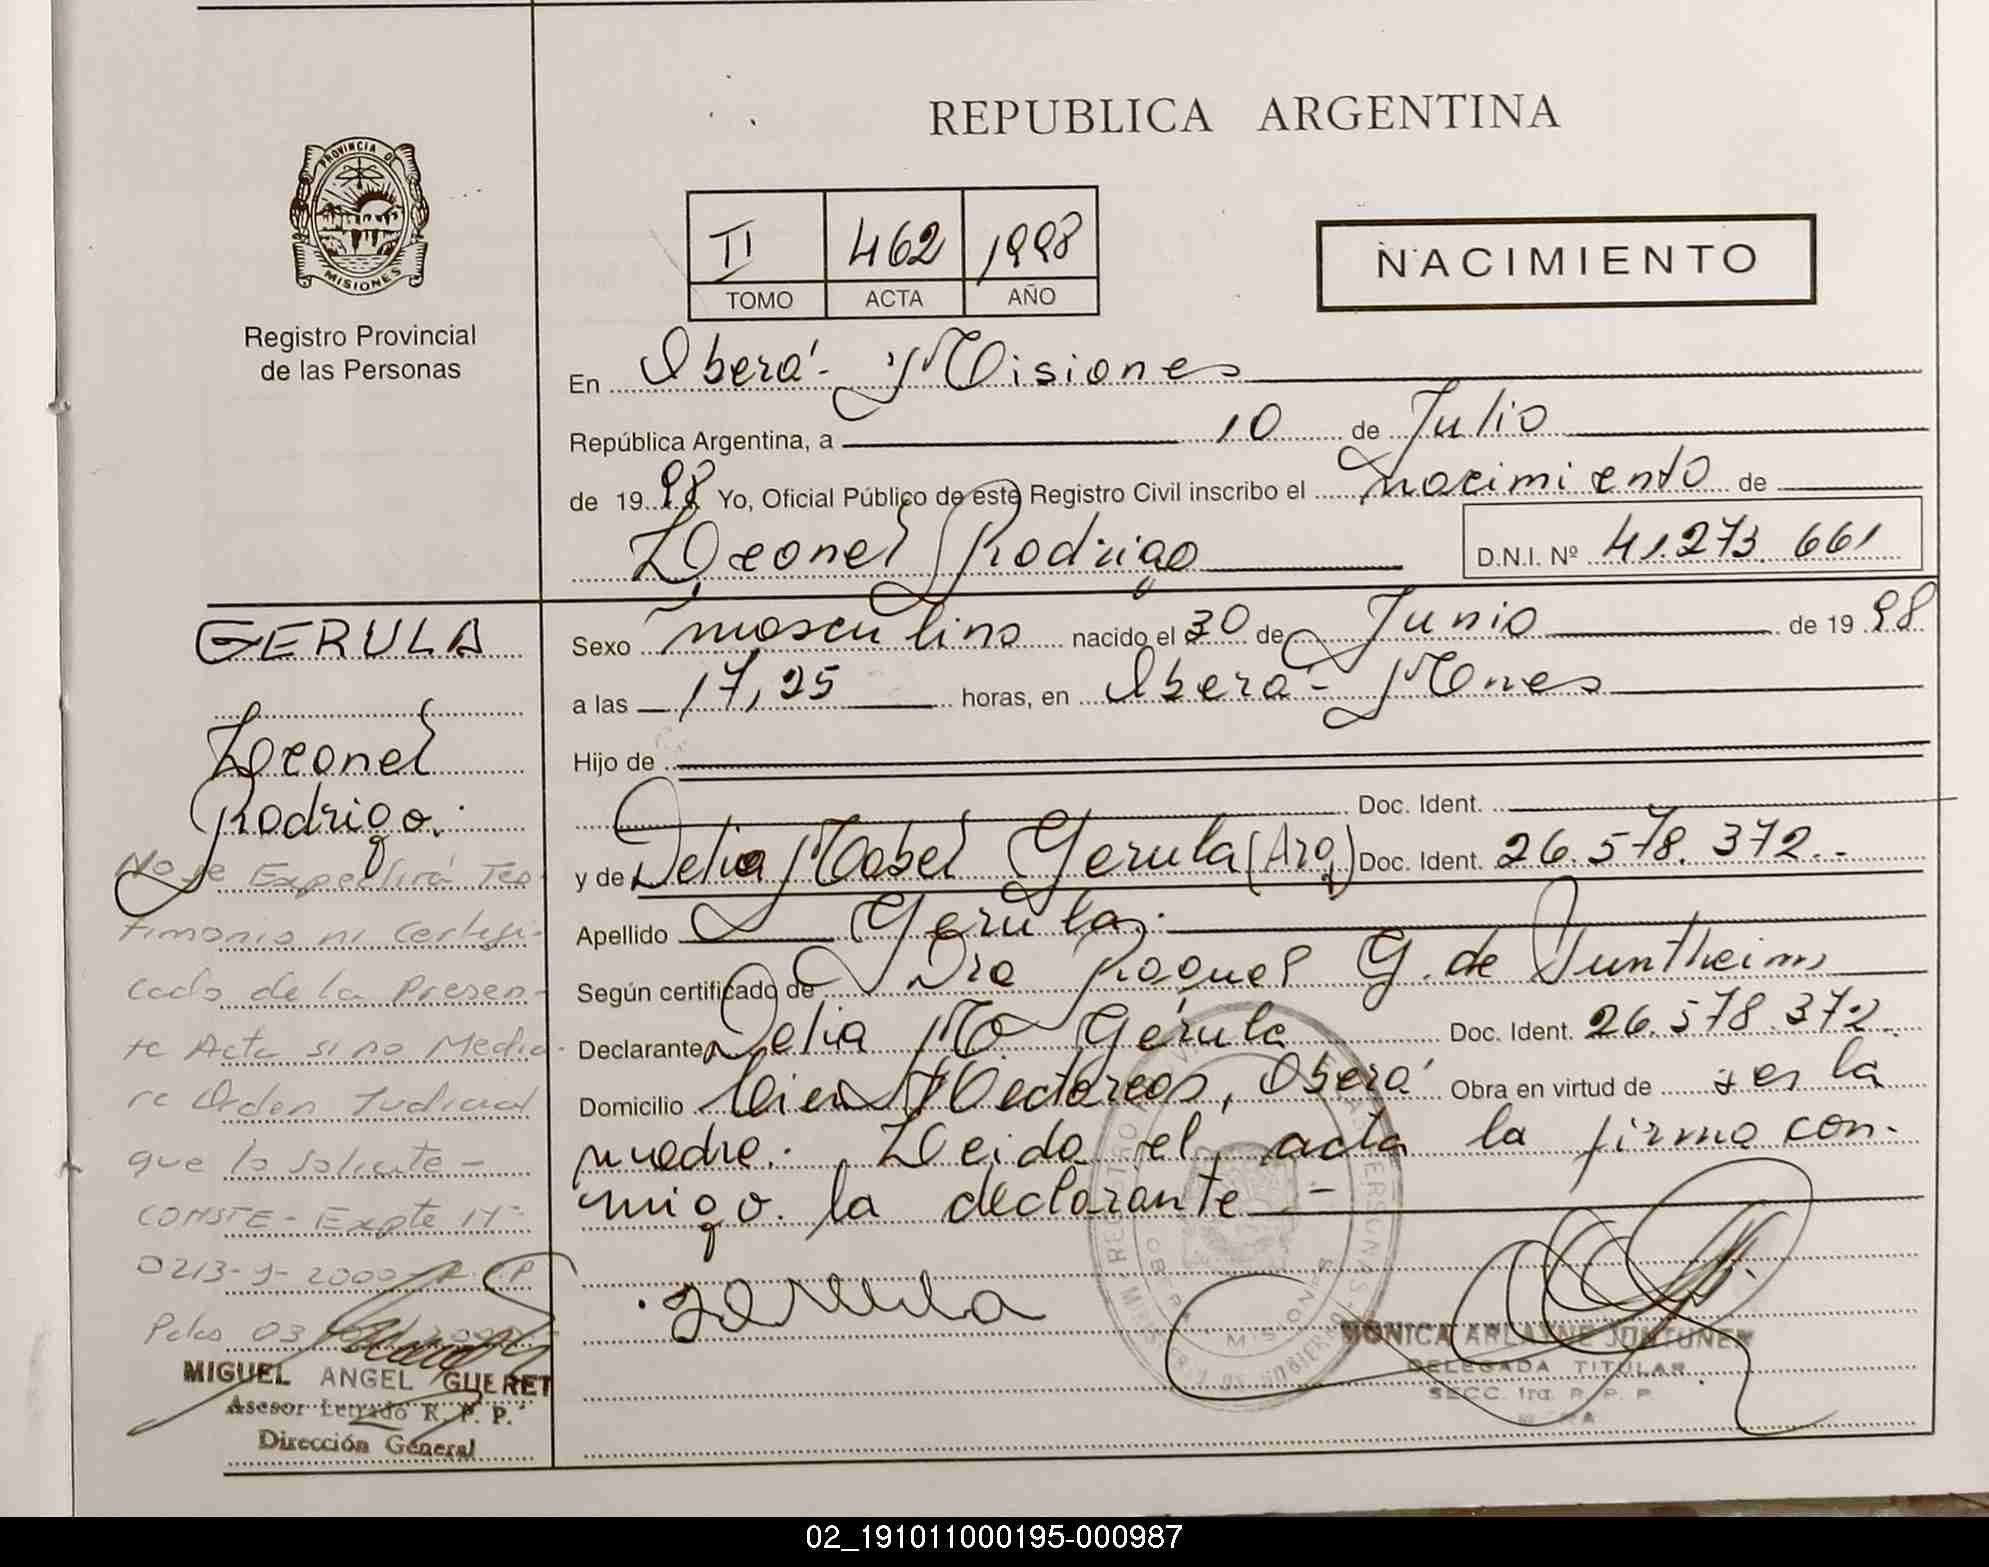 REPUBLICA ARGENTINA
PROVINCIA DE
MISIONES
Registro Provincial
de las Personas
II 462 1998
TOMO ACTA AÑO
NACIMIENTO
En Oberá - Misiones
República Argentina, a 10 de Julio
de 19 98 Yo, Oficial Público de este Registro Civil inscribo el nacimiento de
Leonel Rodrigo D.N.I. Nº 41.273.661
Sexo masculino nacido el 30 de Junio de 19 98
a las 17,25 horas, en Oberá - Mnes
Hijo de
Doc. Ident.
y de Delia Mabel Gerula (Arg) Doc. Ident. 26.578.372.-
Apellido Gerula.
Según certificado de Dra Raquel G. de
Declarante Delia M. Gerula Doc. Ident. 26.578.372.
Domicilio Cien Hectareas, Oberá Obra en virtud de ser la
madre. Leida el acta la firma con-
migo la declarante -
Gerula
MONICA ARLAYNE
DELEGADA TITULAR
SECC. 1ra. R. P. P.
GERULA
Leonel
Rodrigo.
No se Expedirá Tes
timonio ni Certifi-
cado de la Presen-
te Acta si no Media-
re Orden Judicial
que lo solicite -
CONSTE - Expte Nº
0213-9-2000- R.P.P
Pdas 03
MIGUEL ANGEL GUERET
Asesor Letrado R. P. P.
Dirección General
02_191011000195-000987